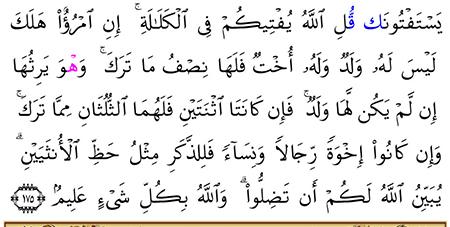 يَسْتَفْتُونَك قُّلِ اللَّهُ يُفْتِيكُمْ فِى الْكَلَـٰلَةِ ۚ إِنِ امْرُؤٌا۟ هَلَكَ
لَيْسَ لَهُۥ وَلَدٌ وَلَهُۥٓ أُخْتٌ فَلَهَا نِصْفُ مَا تَرَكَ ۚ وَهْوَ يَرِثُهَا
إِن لَّمْ يَكُن لَّهَا وَلَدٌ ۚ فَإِن كَانَتَا اثْنَتَيْنِ فَلَهُمَا الثُّلُثَانِ مِمَّا تَرَكَ ۚ
وَإِن كَانُوٓا۟ إِخْوَةً رِّجَالًا وَنِسَآءً فَلِلذَّكَرِ مِثْلُ حَظِّ الْأُنثَيَيْنِ ۗ
يُبَيِّنُ اللَّهُ لَكُمْ أَن تَضِلُّوا۟ ۗ وَاللَّهُ بِكُلِّ شَىْءٍ عَلِيمٌۢ ١٧٥